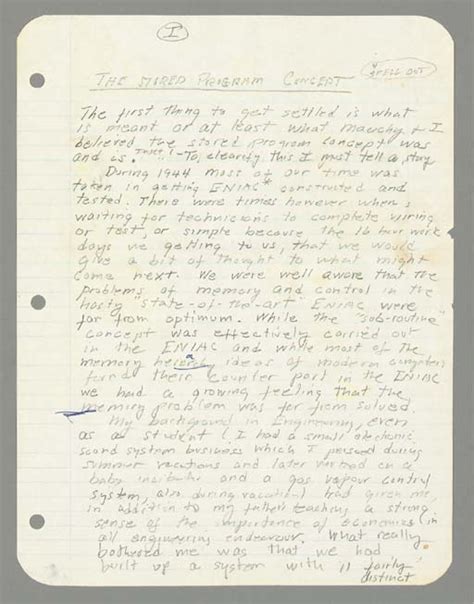 I
SPELL OUT
THE STORED PROGRAM CONCEPT
The first thing to get settled is what
is meant or at least what Mauchly & I
believed the stored program concept was
and is. Insert 1 - To clarify this I must tell a story
During 1944 most of our time was
taken in getting ENIAC* constructed and
tested. There were times however when
waiting for technicians to complete wiring
or test, or simple because the 16 hour work
days we getting to us, that we would
give a bit of thought to what might
come next. We were well aware that the
problems of memory and control in the
hasty "state-of-the-art" ENIAC were
far from optimum. While the "sub-routine"
concept was effectively carried out
in the ENIAC and while most of the
memory ideas of modern computers
found their counter part in the ENIAC
we had a growing feeling that the
memory problem was far from solved.
My background in Engineering, even
as a student (I had a small electronic
sound system business which I pursued during
summer vacations and later worked on a
baby incubator and a gas vapour control
system, also during vacation) had given me,
in addition to my father's teaching a strong
sense of the importance of economics in
all engineering endeavour. What really
bothered me was that we had
built up a system with 11 fairly
distinct